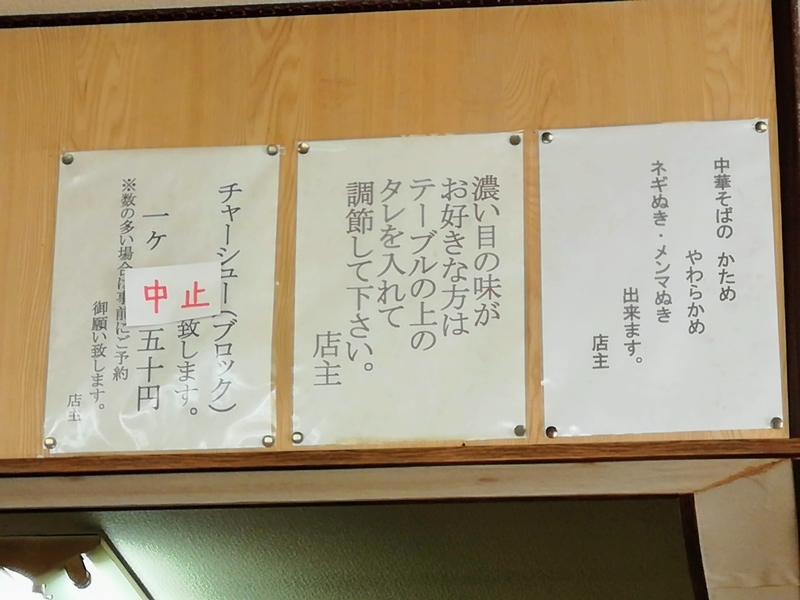 中華そばの かため
やわらかめ
ネギぬき・メンマぬき
出来ます。
店主
濃い目の味が
お好きな方は
テーブルの上の
タレを入れて
調節して下さい。
店主
チャーシュー(ブロック)
致します。
一ヶ 五十円
※数の多い場合は事前にご予約
御願い致します。
店主
中止